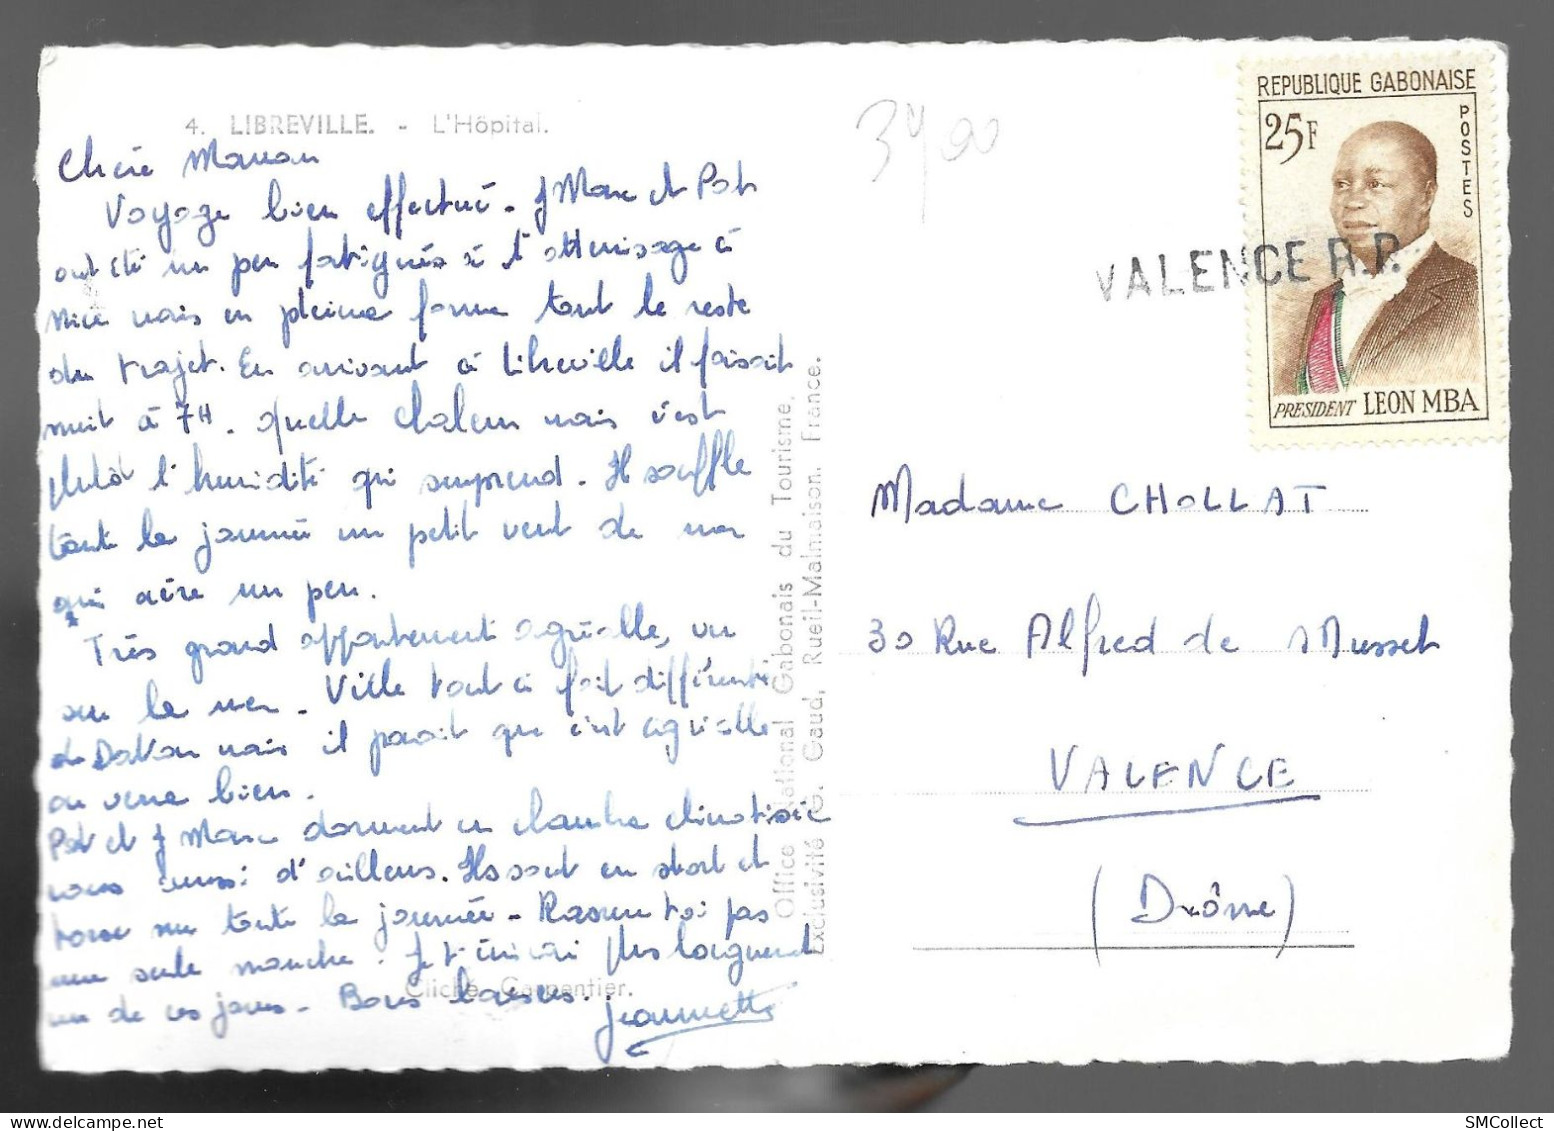 4. LIBREVILLE. - L'Hôpital.
Chère Maman
Voyage bien effectué. J Marc et Pat
ont été un peu fatigués à l'atterrissage à
Nice mais en pleine forme tout le reste
du trajet. En arrivant à Libreville il faisait
nuit à 7H. quelle chaleur mais c'est
plutôt l'humidité qui surprend. Il souffle
toute la journée un petit vent de mer
qui aère un peu.
Très grand appartement agréable, vu
sur la mer. Ville tout à fait différente
de Dakar mais il parait que c'est agréable
on verra bien.
Pat et J Marc dorment en chambre climatisée
nous aussi d'ailleurs. Ils sont en short et
torse nu toute la journée. Rassure toi pas
une seule manche. Je t'écrirai plus longuement
un de ces jours. Bons baisers.
Jeannette
Cliché Carpentier.
Office National Gabonais du Tourisme.
Exclusivité G. Gaud, Rueil-Malmaison. France.
REPUBLIQUE GABONAISE
POSTES
25F
PRESIDENT LEON MBA
VALENCE R.P.
Madame CHOLLAT
30 Rue Alfred de Musset
VALENCE
(Drôme)
SMCollect